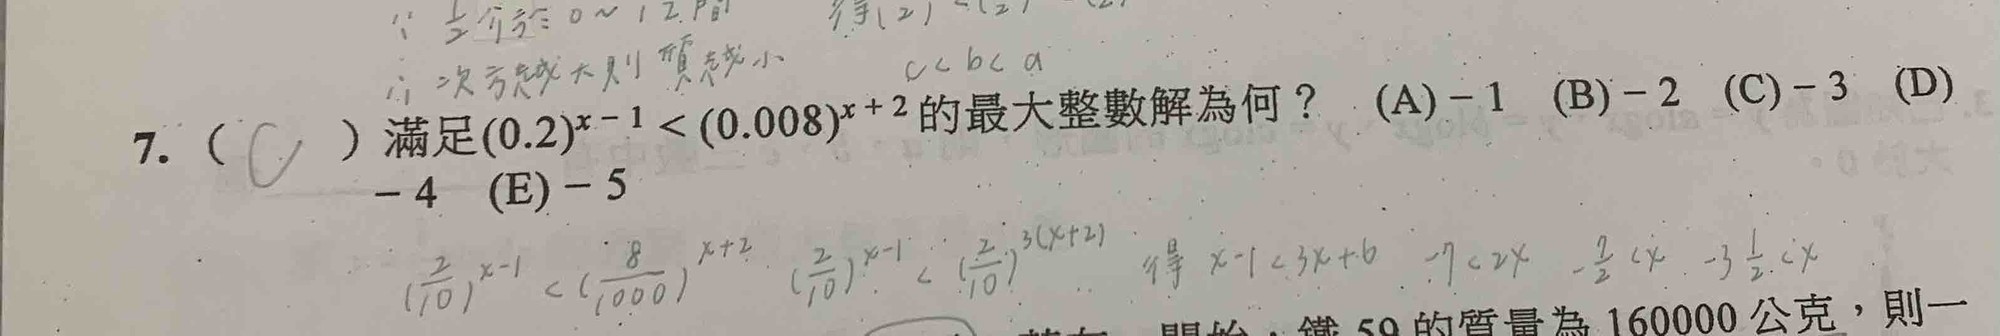 ∵ 1/2 介於 0～1 之間
∴ 次方越大則質越小 c < b < a
7. ( C ) 滿足(0.2)^{x－1} < (0.008)^{x＋2} 的最大整數解為何？ (A)－1 (B)－2 (C)－3 (D)
－4 (E)－5
(2/10)^{x-1} < (8/1000)^{x+2} (2/10)^{x-1} < (2/10)^{3(x+2)} 得 x-1 < 3x+6 -7 < 2x -7/2 < x -3 1/2 < x
開始，鐵 59 的質量為 160000 公克，則一